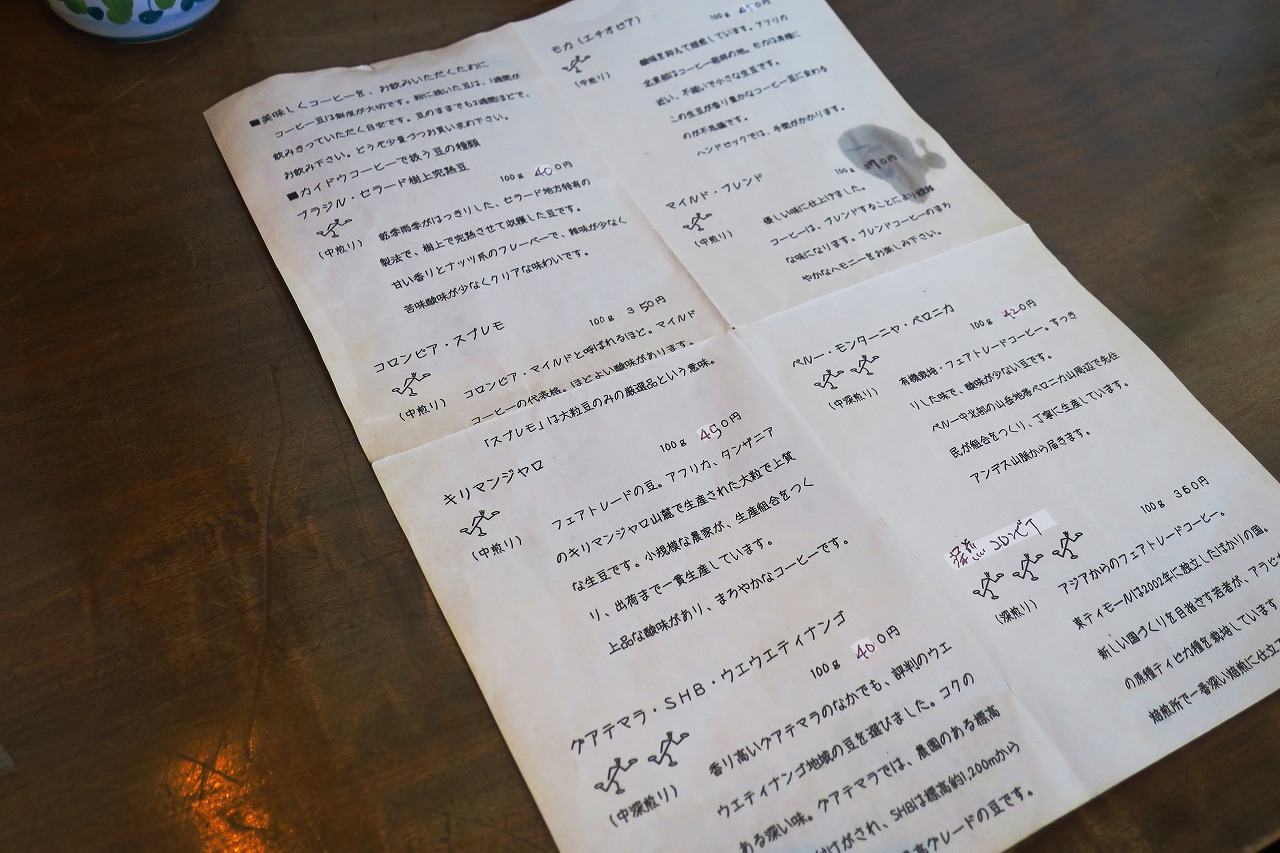 ■美味しくコーヒーを、お飲みいただくために
コーヒー豆は鮮度が大切です。粉に挽いた豆は、1週間が
飲みきっていただく目安です。豆のままでも2週間ほどで、
お飲み下さい。どうぞ少量づつお買い求め下さい。
■カイドウコーヒーで扱う豆の種類
ブラジル・セラード樹上完熟豆
100g 400円
(中煎り)
乾季雨季がはっきりした、セラード地方特有の
製法で、樹上で完熟させて収穫した豆です。
甘い香りとナッツ系のフレーバーで、雑味が少なく
苦味酸味が少なくクリアな味わいです。
コロンビア・スプレモ
100g 350円
(中煎り)
コロンビア・マイルドと呼ばれるほど。マイルド
コーヒーの代表格。ほどよい酸味があります。
「スプレモ」は大粒豆のみの厳選品という意味。
キリマンジャロ
100g 450円
(中煎り)
フェアトレードの豆。アフリカ、タンザニア
のキリマンジャロ山麓で生産された大粒で上質
な生豆です。小規模な農家が、生産組合をつく
り、出荷まで一貫生産しています。
上品な酸味があり、まろやかなコーヒーです。
グアテマラ・SHB・ウエウエティナンゴ
100g 400円
(中深煎り)
香り高いグアテマラのなかでも、評判のウエ
ウエティナンゴ地域の豆を選びました。コクの
ある深い味。グアテマラでは、農園のある標高
付けがされ、SHBは標高約1,200mから
高グレードの豆です。
モカ(エチオピア)
100g
(中煎り)
酸味を抑えて焙煎しています。アフリカ
北東部はコーヒー発祥の地。モカは原種に
近い、不揃いで小さな生豆です。
この生豆が香り豊かなコーヒー豆に変わる
のが不思議です。
ハンドピックでは、手間がかかります。
マイルド・ブレンド
100g
(中煎り)
優しい味に仕上げました。
コーヒーは、ブレンドすることにより複雑
な味になります。ブレンドコーヒーのまろ
やかなハモニーをお楽しみ下さい。
ペルー・モンターニャ・ベロニカ
100g 420円
(中深煎り)
有機栽培・フェアトレードコーヒー。すっき
りした味で、酸味が少ない豆です。
ペルー中北部の山岳地帯ベロニカ山周辺で先住
民が組合をつくり、丁寧に生産しています。
アンデス山脈から届きます。
コロンビア
100g 360円
(深煎り)
アジアからのフェアトレードコーヒー。
東ティモールは2002年に独立したばかりの国。
新しい国づくりを目指さす若者が、アラビカ
の原種ティピカ種を栽培しています
焙煎所で一番深い焙煎に仕立て